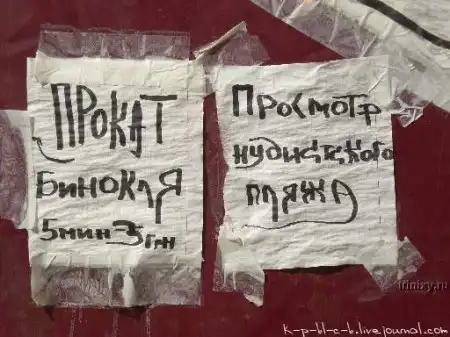 ПРОКАТ
БИНОКЛЯ
5мин 3грн
ПРОСМОТР
нудистского
пляжа
irinixy.ru
k-p-bl-c-b.livejournal.com